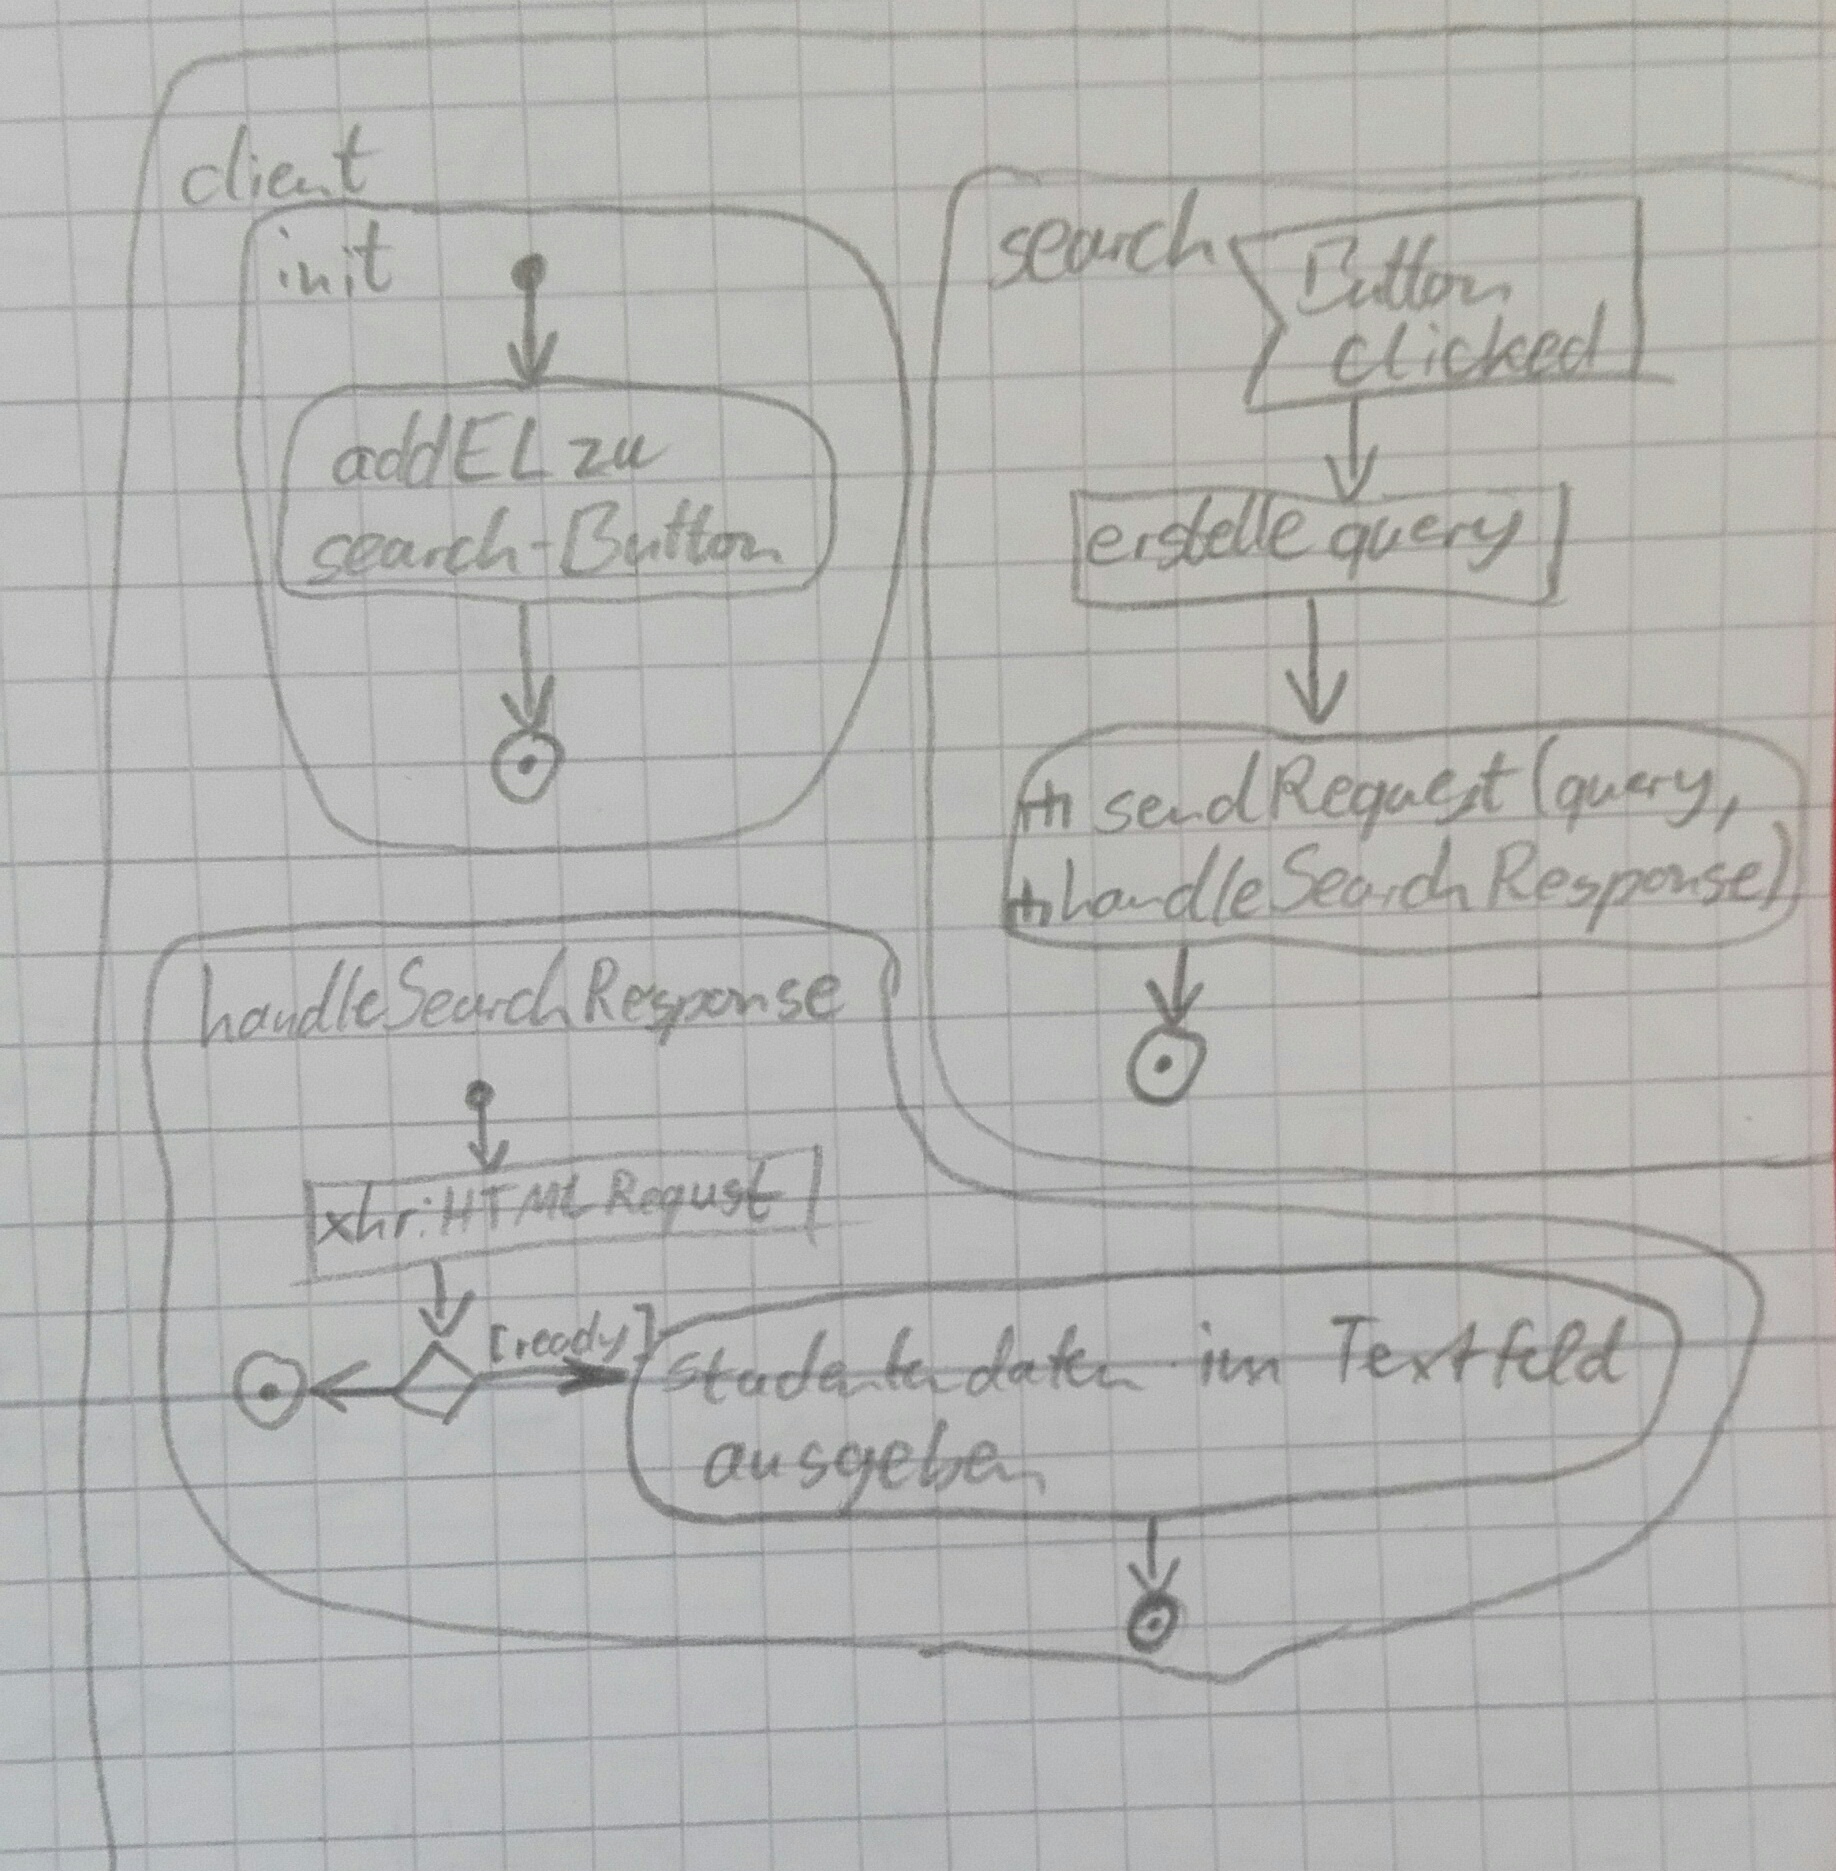 client
init
addEL zu
search-Button
search
Button
clicked
erstelle query
sendRequest(query,
handleSearchResponse)
handleSearchResponse
xhr:HTMLRequst
[ready]
studentendaten im Textfeld
ausgeben